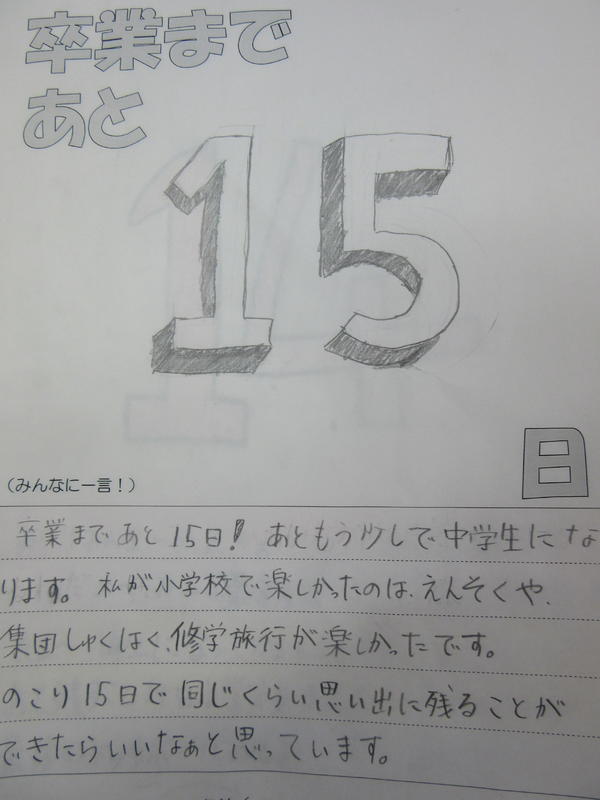 卒業まで
あと
15
日
(みんなに一言！)
卒業まであと15日！ あともう少しで中学生にな
ります。私が小学校で楽しかったのは、えんそくや、
集団しゅくはく、修学旅行が楽しかったです。
のこり15日で同じくらい思い出に残ることが
できたらいいなぁと思っています。